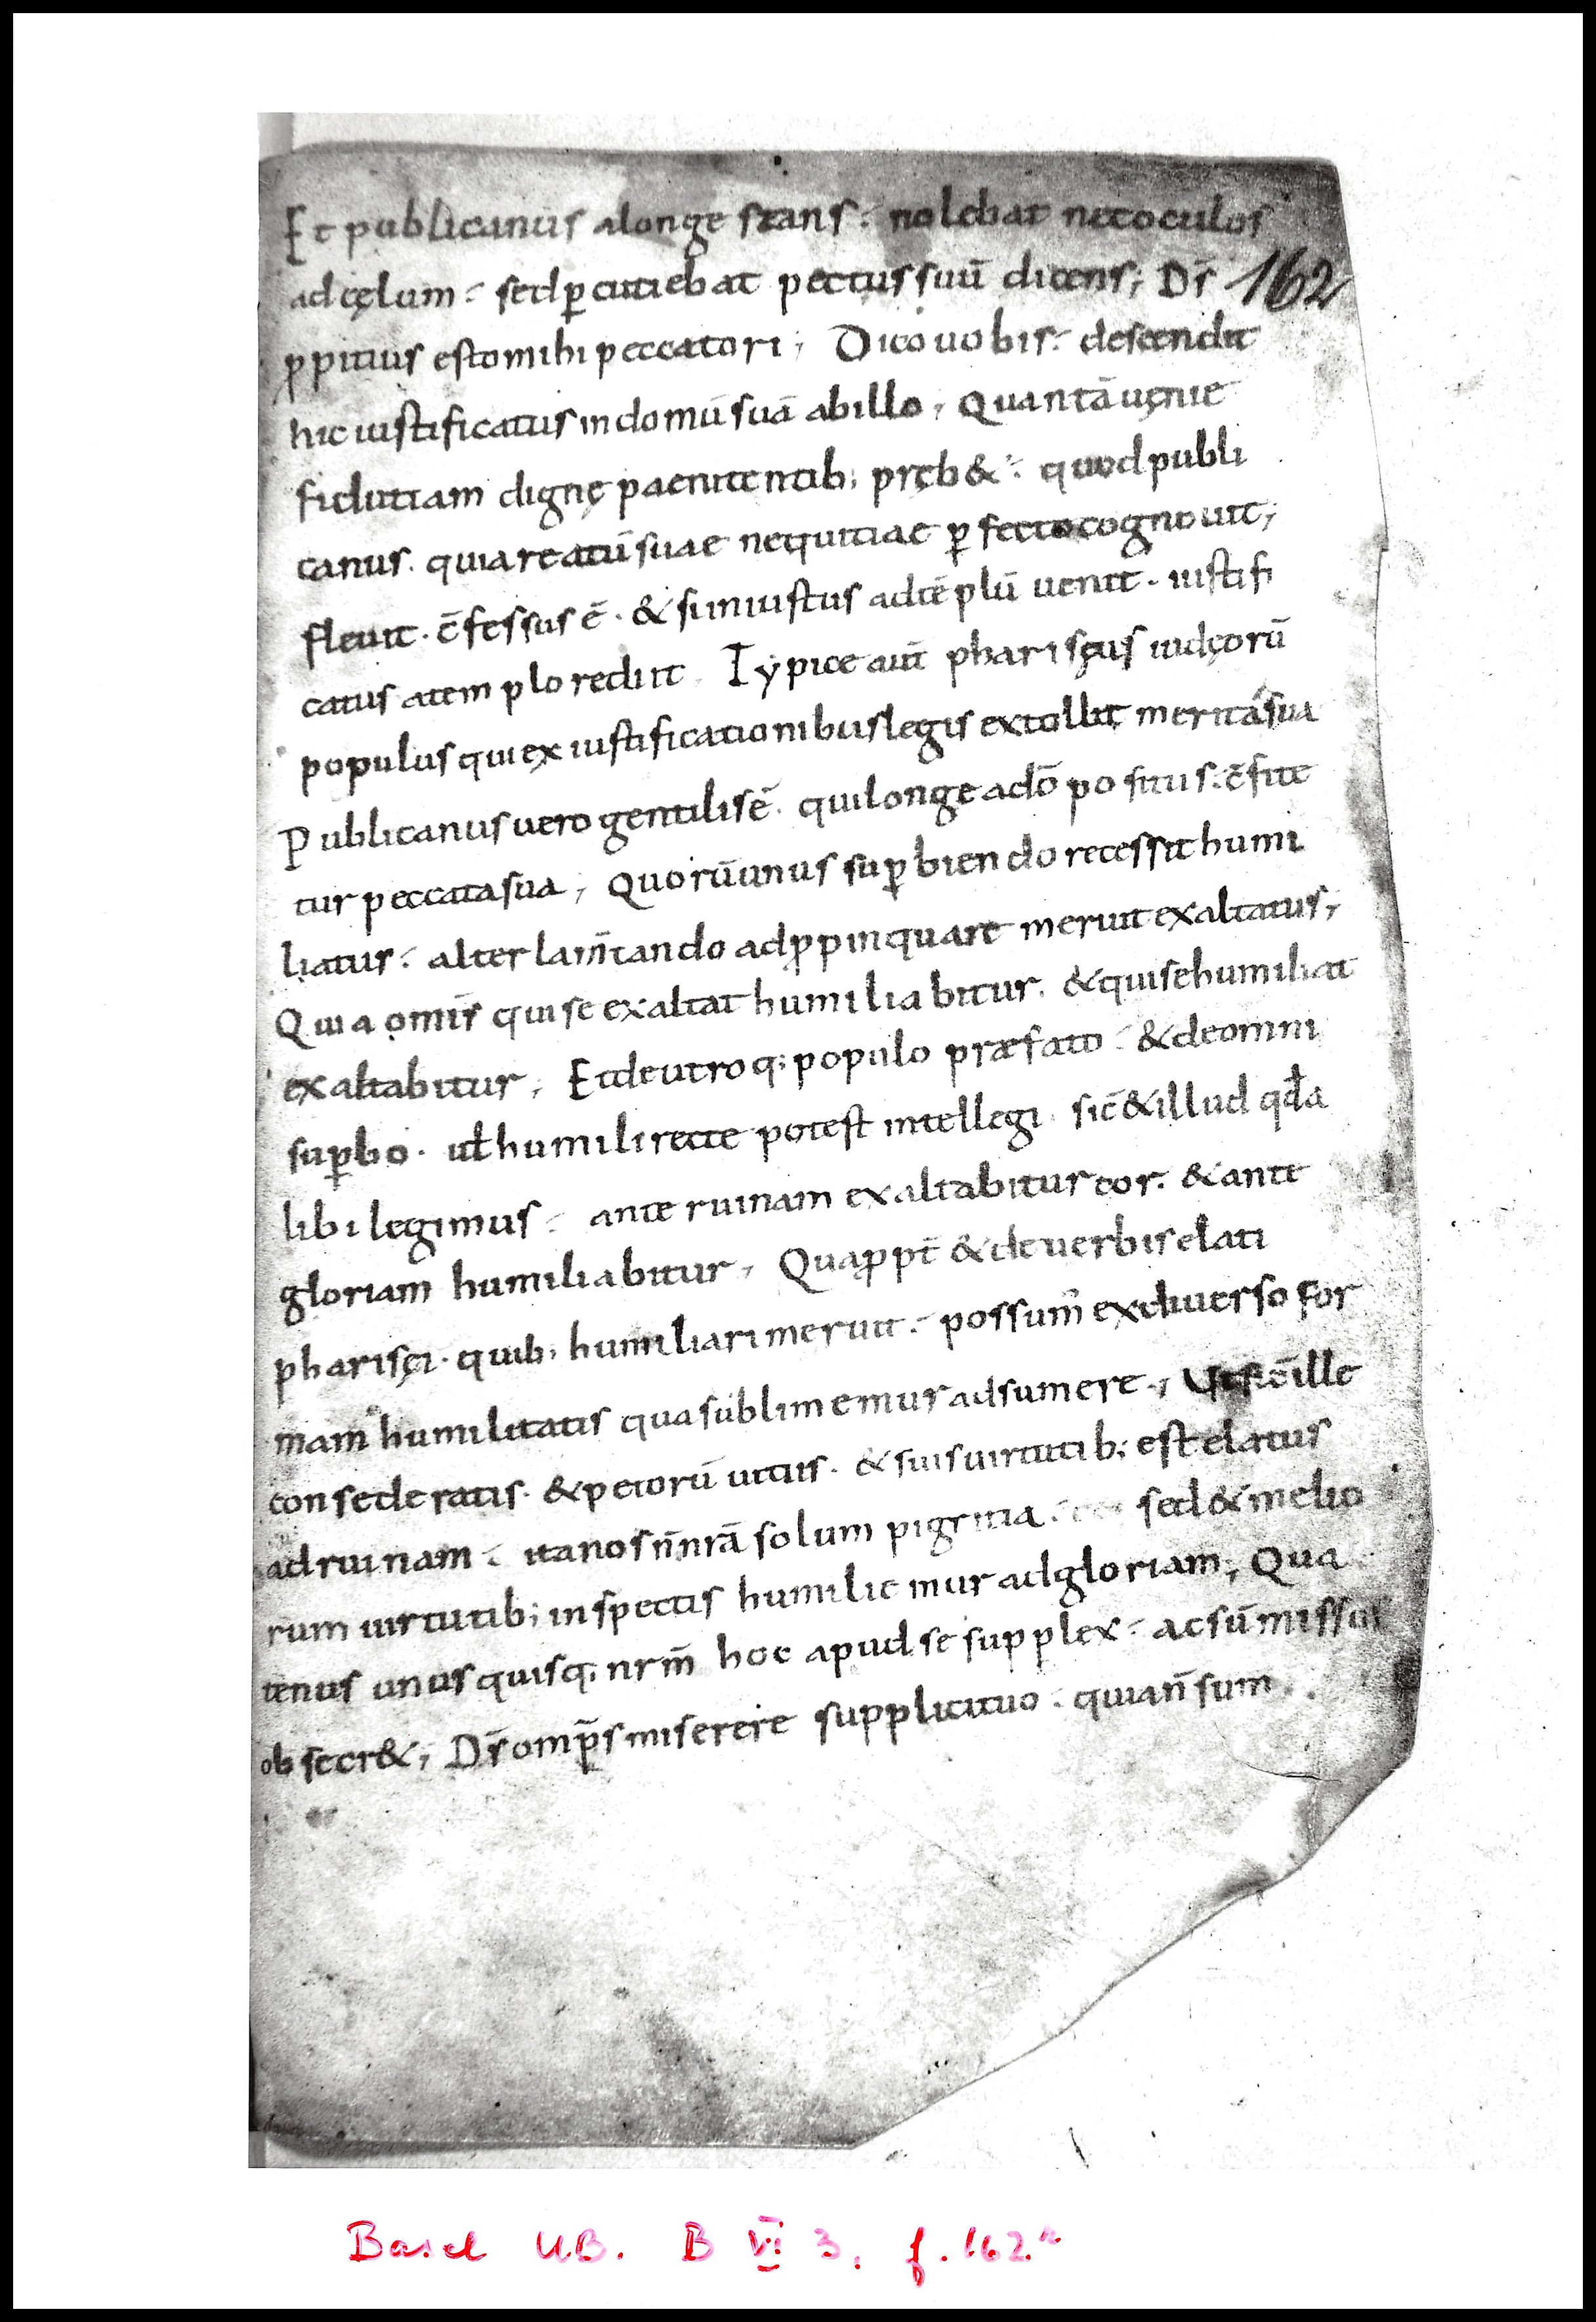 Et publicanus alonge stans. nolebat necoculos
adcęlum. sedp̱cutiebat pectus suū dicens; Ds̄ 162
ꝓpitius estomihi peccatori; Dico uobis. descendit
hic iustificatus indomū suā abillo; Quantā uęnie
fidutiam digne paenitentib; pręb&. quod publi
canus. quia reatū suae nequitiae ꝑfecto cognouit;
fleuit. c̄fessus ē. & si iniustus adtēplū uenit. iustifi
catus atemplo rediit. Typice aut̄ pharisęus iudęorū
populus qui ex iustificationibus legis extollit merita sua
Publicanus uero gentilis ē. qui longe adō positus. c̄fite
tur peccata sua; Quorū unus suꝑbiendo recessit humi
liatus. alter lam̄tando adꝓpinquare meruit exaltatus;
Quia omīs qui se exaltat humiliabitur. & qui se humiliat
exaltabitur; Et deutroq; populo præfato. & deomni
suꝑbo. uł humili recte potest intellegi. sic̄ & illud qđ a
libi legimus. ante ruinam exaltabitur cor. & ante
gloriam humiliabitur; Quaꝓpt̄ & de uerbis elati
pharisęi. quib; humiliari meruit. possum̄ ex diuerso for
mam humilitatis qua sublimemur adsumere; Ut sic̄ ille
consederatis. & peiorū uitiis. & suis uirtutib; est elatus
ad ruinam. ita nos n̄ nr̄ā solum pigritia. sed & melio
rum uirtutib; inspectis humiliemur adgloriam; Qua
tenus unusquisq; nr̄m̄ hoc apud se supplex. ac sūmissus
obsecr&; Ds̄ omp̄s miserere supplici tuo. quia n̄ sum
Basel U.B. B VI 3, f. 162r